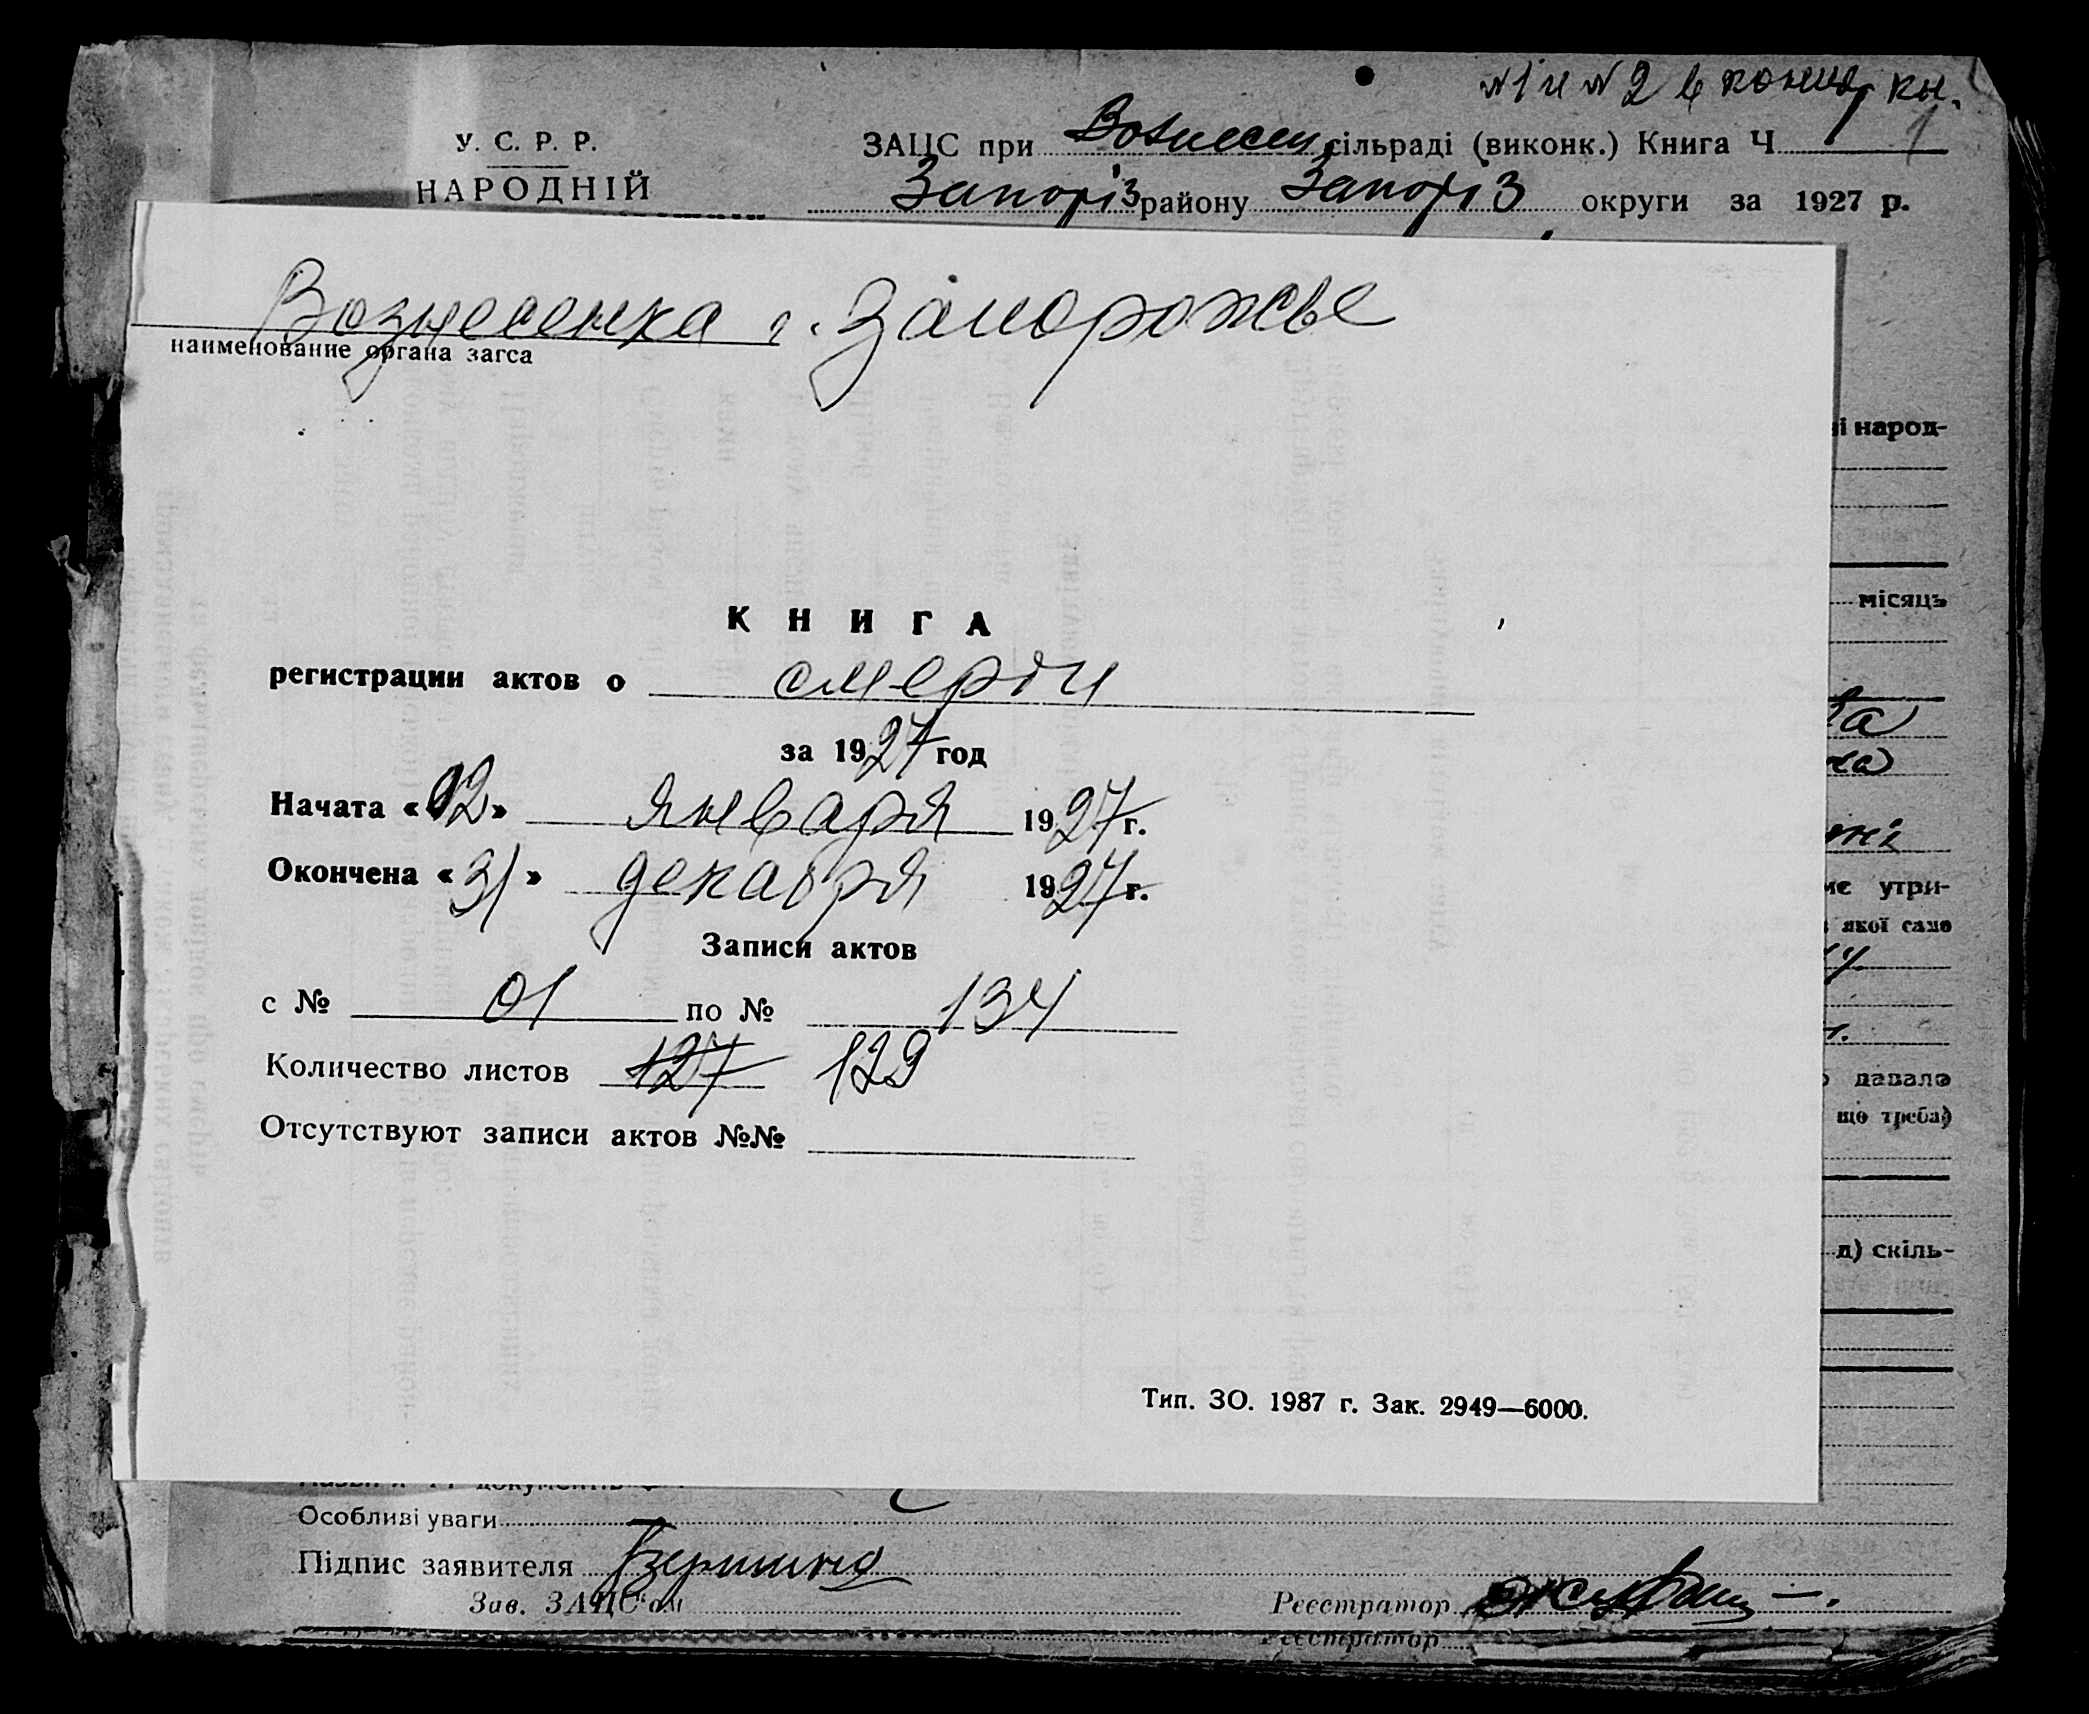 №1 и №2 в конце кн.
У. С. Р. Р.
НАРОДНІЙ
ЗАЦС при Вознесен сільраді (виконк.) Книга Ч 1
Запоріз району Запоріз округи за 1927 р.
Вознесенка г. Запорожье
наименование органа загса
і народ-
місяць
К Н И Г А
регистрации актов о смерти
за 1927 год
Начата «02» января 1927 г.
Окончена «31» декабря 1927 г.
Записи актов
с № 01 по № 134
Количество листов 127 129
Отсутствуют записи актов №№
утри-
якої саме
давало
що треба)
д) скіль-
Тип. ЗО. 1987 г. Зак. 2949—6000.
Особливі уваги
Підпис заявителя
Зав. ЗАЦС'ом
Реєстратор
Реєстратор